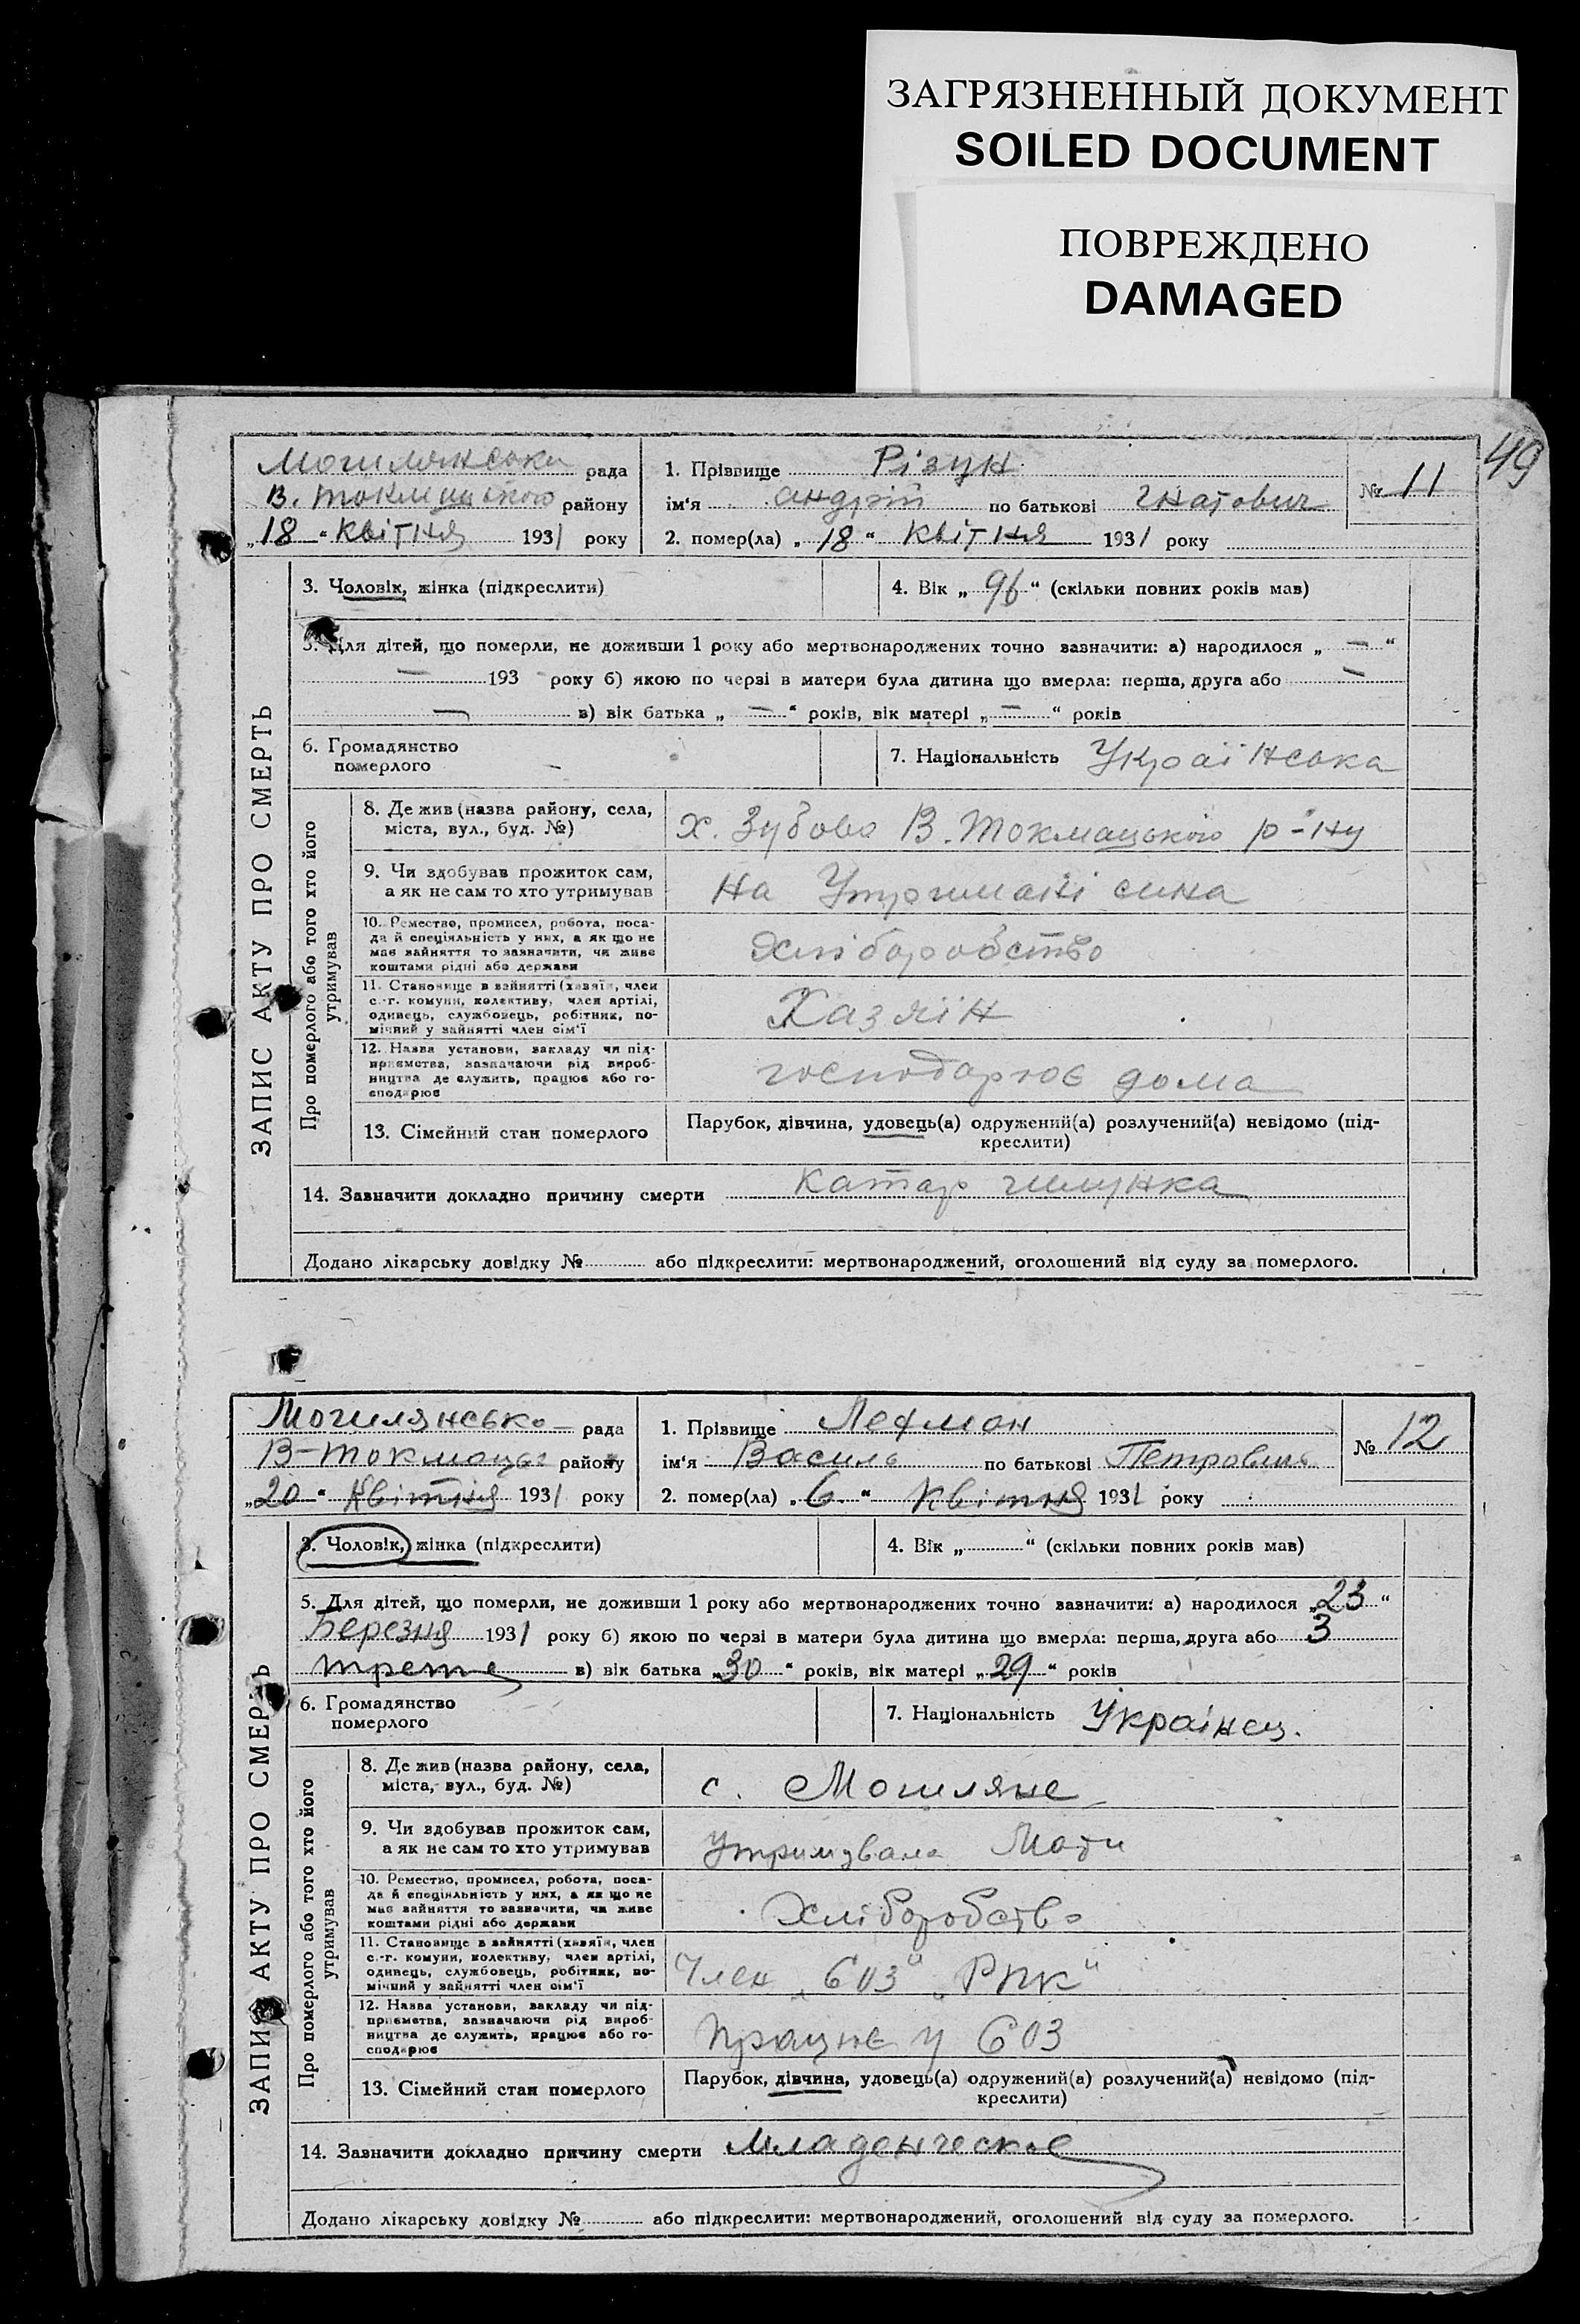 ЗАГРЯЗНЕННЫЙ ДОКУМЕНТ
SOILED DOCUMENT
ПОВРЕЖДЕНО
DAMAGED
49
Могилянська рада
В. Токмацького району
„18“ Квітня 1931 року
1. Прізвище Різун
ім‘я Андрій по батькові Гнатович
2. помер(ла) „18“ Квітня 1931 року
№ 11
3. Чоловік, жінка (підкреслити)
4. Вік „96“ (скільки повних років мав)
5. Для дітей, що померли, не доживши 1 року або мертвонароджених точно зазначити: а) народилося „ — “
— 193 року б) якою по черзі в матери була дитина що вмерла: перша, друга або —
— в) вік батька „ — “ років, вік матері „ — “ років
6. Громадянство
померлого —
7. Національність Українська
ЗАПИС АКТУ ПРО СМЕРТЬ
Про померлого або того хто його
утримував
8. Де жив (назва району, села,
міста, вул., буд. №)
х. Зубово В. Токмацького р-ну
9. Чи здобував прожиток сам,
а як не сам то хто утримував
На Утримані сина
10. Ремество, промисел, робота, поса-
да й спеціяльність у них, а як що не
має зайняття то зазначити, чи живе
коштами рідні або держави
Хліборобство
11. Становище в зайнятті (хазяїн, член
с.-г. комуни, колективу, член артілі,
одинець, службовець, робітник, по-
мічний у зайнятті член сім‘ї
Хазяїн
12. Назва установи, закладу чи під-
приємства, зазначаючи рід вироб-
ництва де служить, працює або го-
сподарює
господарює дома
13. Сімейний стан померлого
Парубок, дівчина, удовець(а) одружений(а) розлучений(а) невідомо (під-
креслити)
14. Зазначити докладно причину смерти Катар шлунка
Додано лікарську довідку № або підкреслити: мертвонароджений, оголошений від суду за померлого.
Могилянсько рада
В-Токмацьк району
„20“ Квітня 1931 року
1. Прізвище Лехман
ім‘я Василь по батькові Петрович
2. помер(ла) „6“ Квітня 1931 року
№ 12
3. Чоловік, жінка (підкреслити)
4. Вік „ “ (скільки повних років мав)
5. Для дітей, що померли, не доживши 1 року або мертвонароджених точно зазначити: а) народилося „23“
Березня 1931 року б) якою по черзі в матери була дитина що вмерла: перша, друга або 3
трете в) вік батька „30“ років, вік матері „29“ років
6. Громадянство
померлого
7. Національність Українец.
ЗАПИС АКТУ ПРО СМЕРТЬ
Про померлого або того хто його
утримував
8. Де жив (назва району, села,
міста, вул., буд. №)
с. Могиляне
9. Чи здобував прожиток сам,
а як не сам то хто утримував
Утримувала Мати
10. Ремество, промисел, робота, поса-
да й спеціяльність у них, а як що не
має зайняття то зазначити, чи живе
коштами рідні або держави
Хліборобство
11. Становище в зайнятті (хазяїн, член
с.-г. комуни, колективу, член артілі,
одинець, службовець, робітник, по-
мічний у зайнятті член сім‘ї
Член „СОЗ“ „РПК“
12. Назва установи, закладу чи під-
приємства, зазначаючи рід вироб-
ництва де служить, працює або го-
сподарює
Працює у СОЗ
13. Сімейний стан померлого
Парубок, дівчина, удовець(а) одружений(а) розлучений(а) невідомо (під-
креслити)
14. Зазначити докладно причину смерти Младенческое
Додано лікарську довідку № або підкреслити: мертвонароджений, оголошений від суду за померлого.